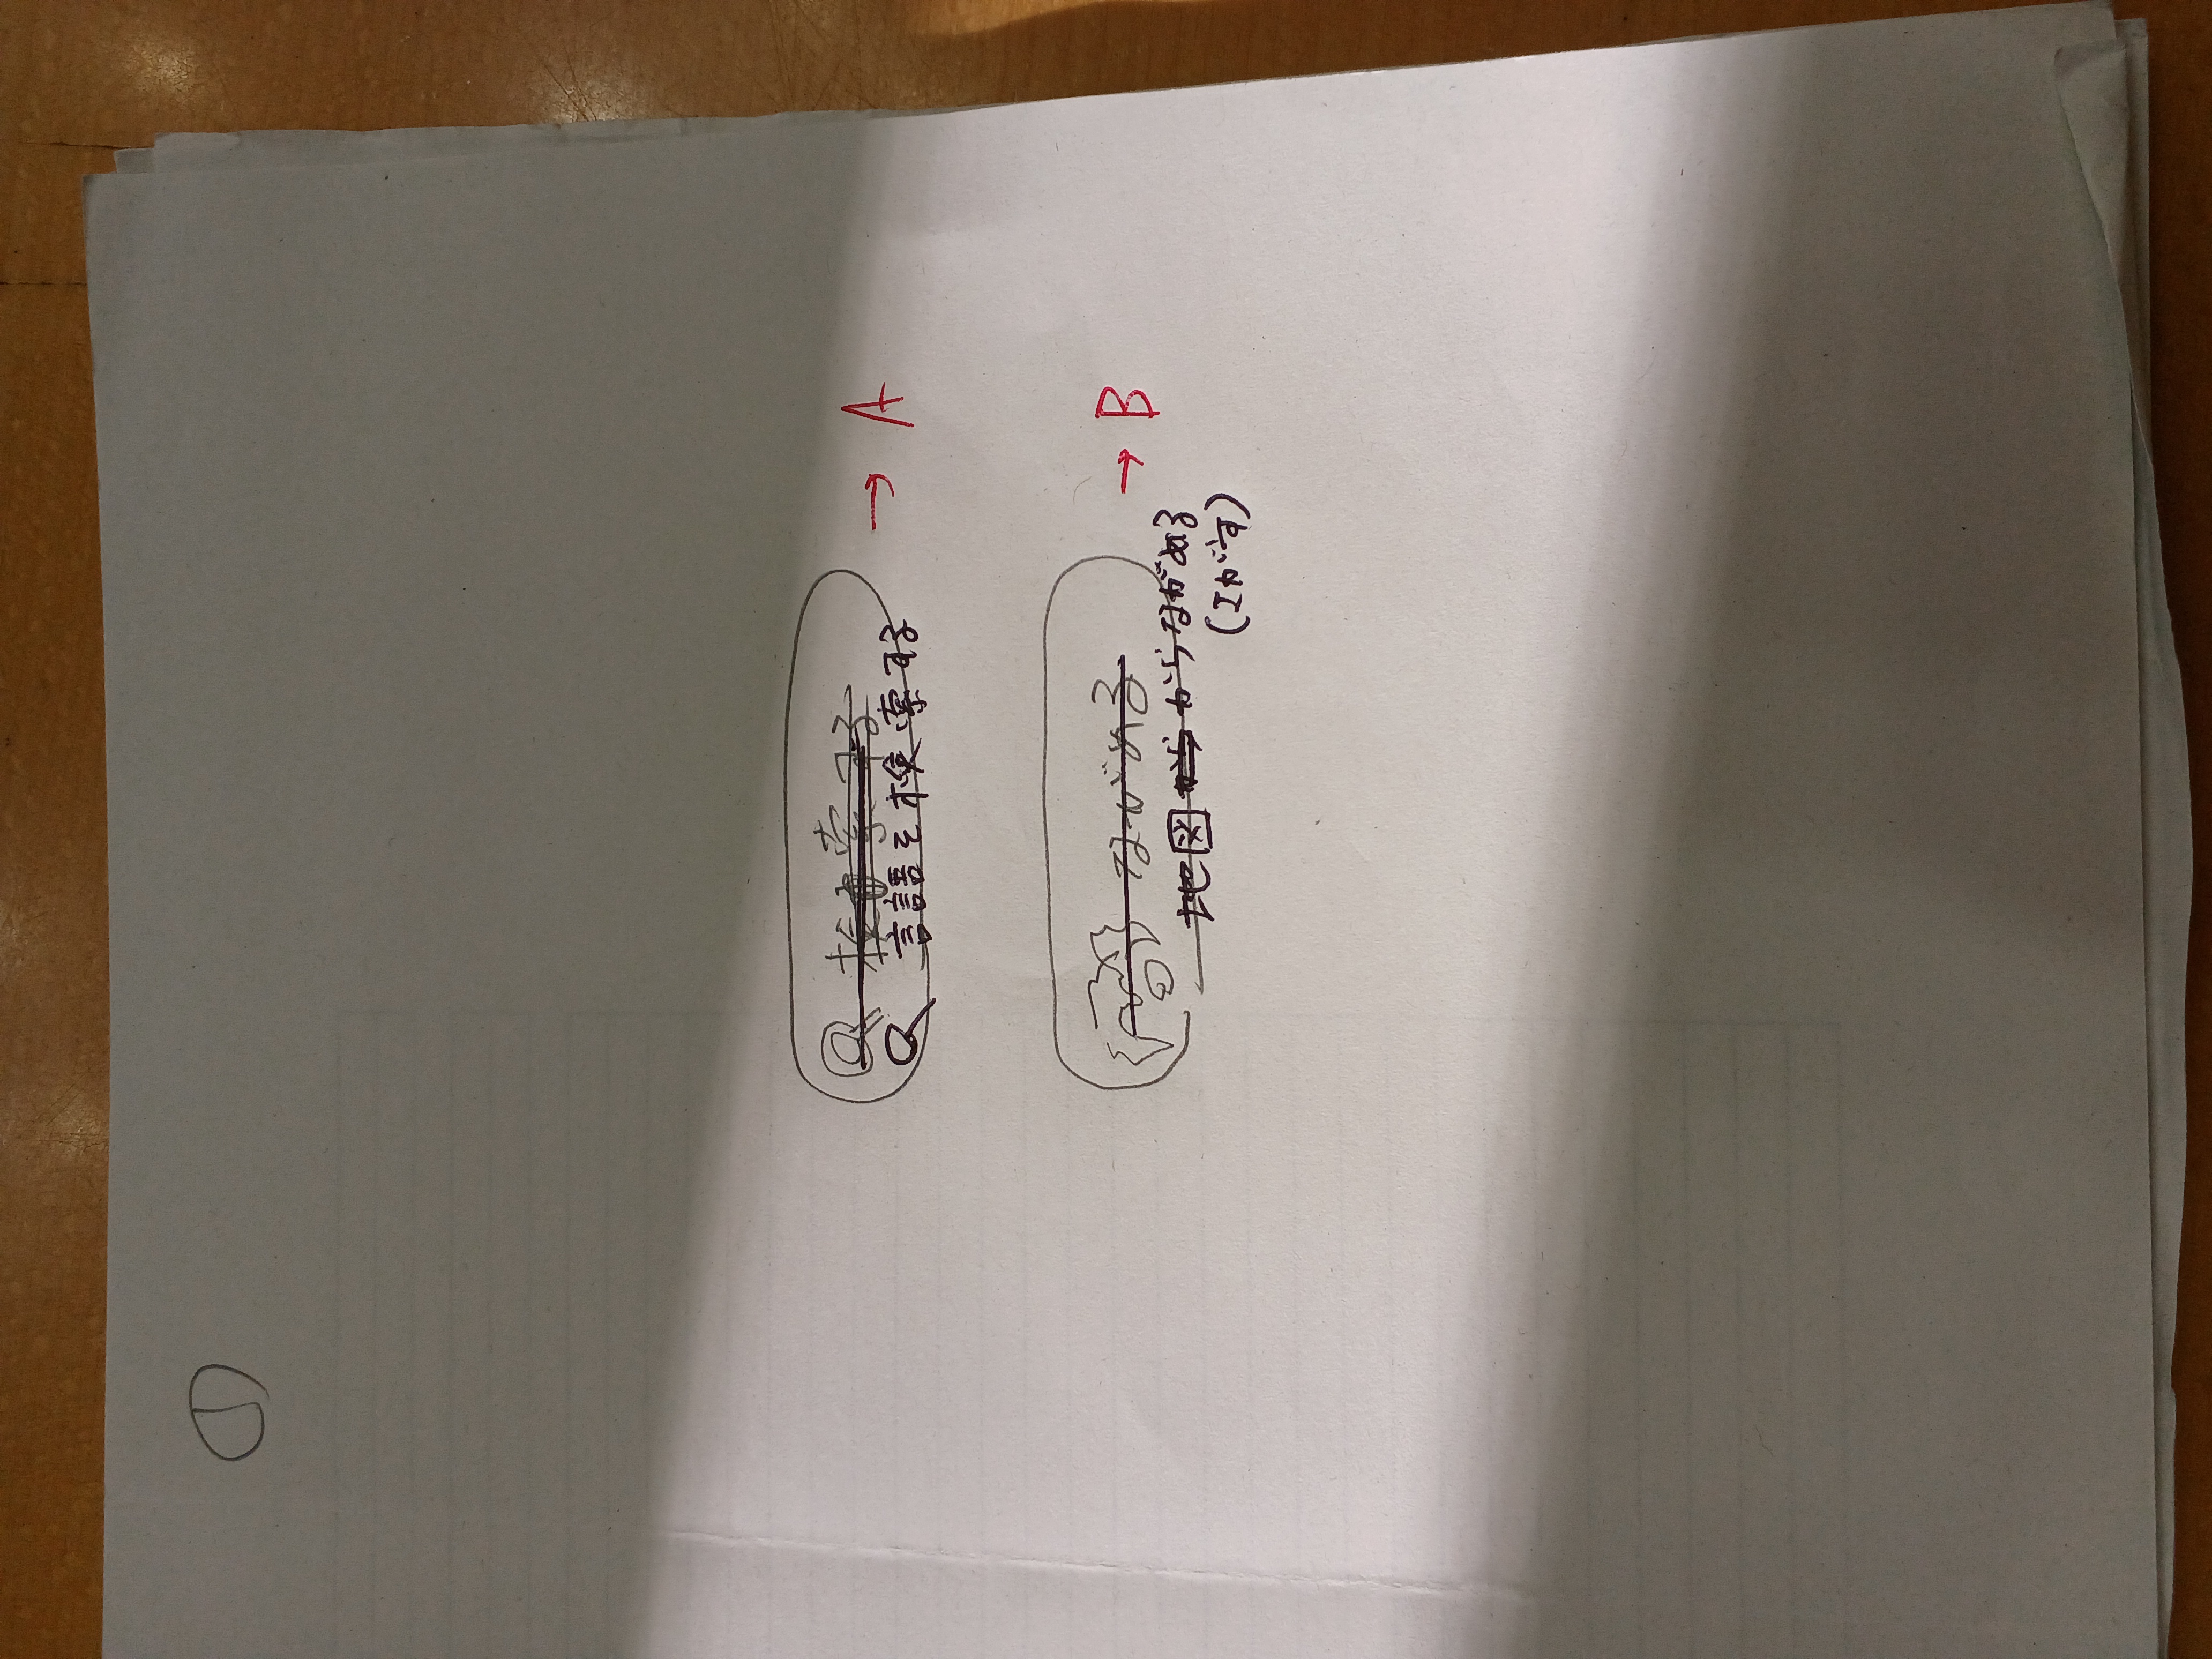 ①
検索する
言語を検索する
→ A
ながめる
→ B
地図から からながめる
(さがす)